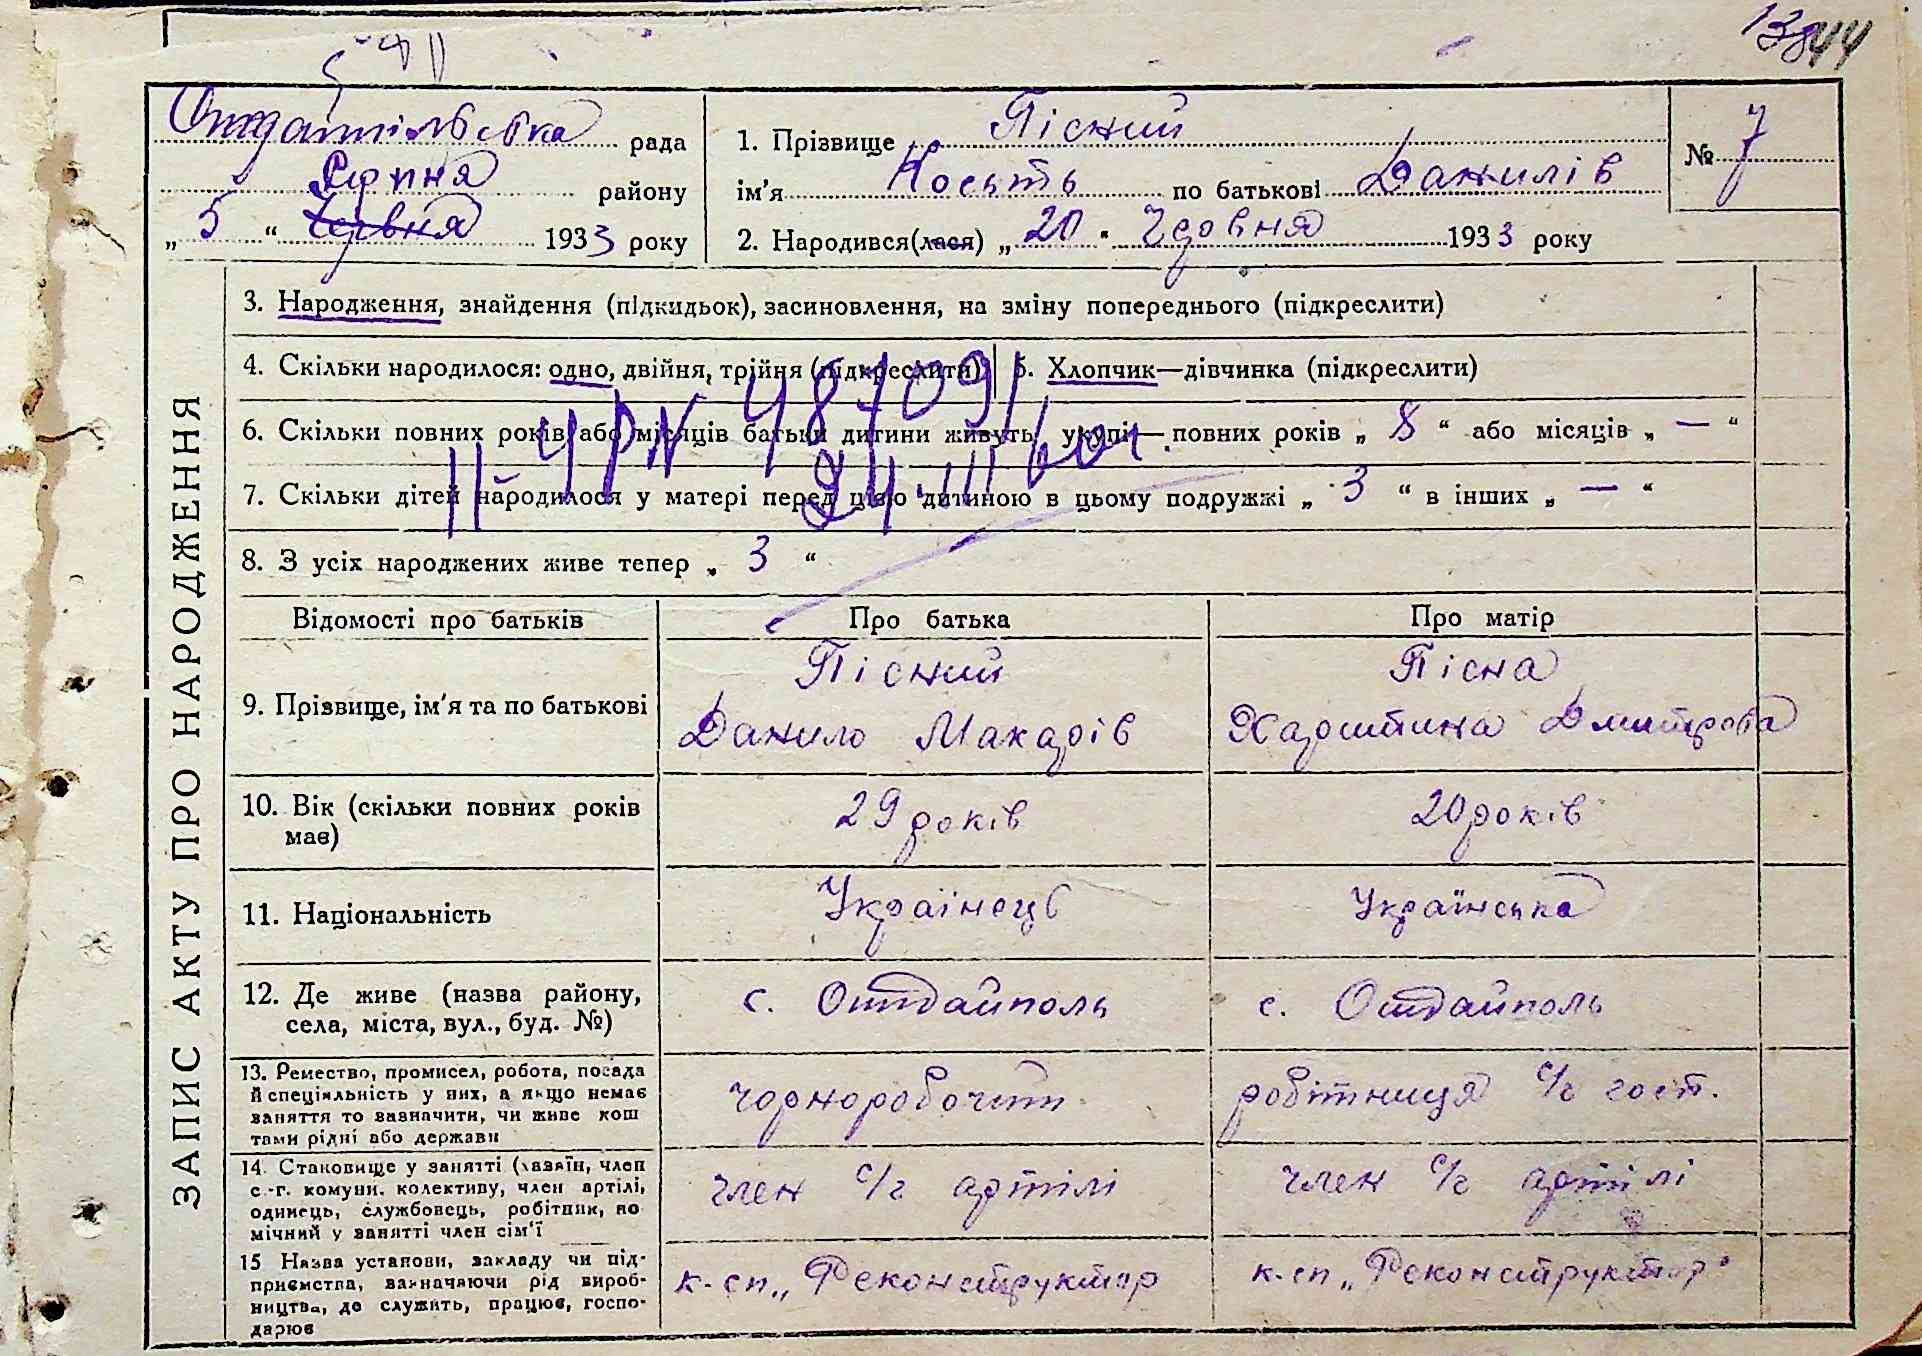 13844
рада
Серпня району
„ 5 “ Червня 1933 року
1. Прізвище Пісний
ім'я Кость по батькові Данилів
2. Народився(лася) „ 20 “ Червня 1933 року
№ 7
ЗАПИС АКТУ ПРО НАРОДЖЕННЯ
3. Народження, знайдення (підкидьок), засиновлення, на зміну попереднього (підкреслити)
4. Скільки народилося: одно, двійня, трійня (підкреслити)
5. Хлопчик—дівчинка (підкреслити)
6. Скільки повних років або місяців батьки дитини живуть укупі— повних років „ 8 “ або місяців „ — “
7. Скільки дітей народилося у матері перед цією дитиною в цьому подружжі „ 3 “ в інших „ — “
8. З усіх народжених живе тепер „ 3 “
Відомості про батьків
Про батька
Про матір
9. Прізвище, ім'я та по батькові
Пісний
Данило Макарів
Пісна
Харитина Дмитрова
10. Вік (скільки повних років
має)
29 років
20 років
11. Національність
Українець
Українська
12. Де живе (назва району,
села, міста, вул., буд. №)
с. Оттдайполь
с. Оттдайполь
13. Ремество, промисел, робота, посада
й спеціяльність у них, а якщо немає
заняття то зазначити, чи живе кош
тами рідні або держави
чорноробочий
робітниця с/г госп.
14. Становище у занятті (хазяїн, член
с.-г. комуни, колективу, член артілі,
одинець, службовець, робітник, по
мічний у занятті член сім'ї
член с/г артілі
член с/г артілі
15 Назва установи, закладу чи під-
приємства, зазначаючи рід вироб-
ництва, де служить, працює, госпо-
дарює
к-сп „Реконструктор
к-сп „Реконструктор"